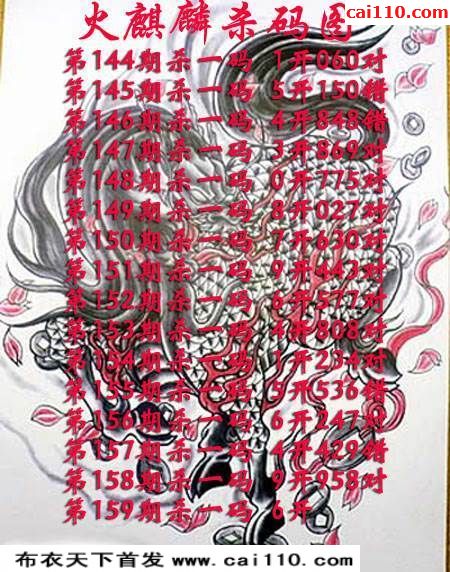 cai110.com
火麒麟杀码图
第144期杀一码 1开060对
第145期杀一码 5开150错
第146期杀一码 4开848错
第147期杀一码 3开869对
第148期杀一码 0开775对
第149期杀一码 8开027对
第150期杀一码 7开630对
第151期杀一码 9开443对
第152期杀一码 6开577对
第153期杀一码 4开808对
第154期杀一码 1开234对
第155期杀一码 5开536错
第156期杀一码 6开247对
第157期杀一码 4开429错
第158期杀一码 9开958对
第159期杀一码 6开
布衣天下首发 www.cai110.com